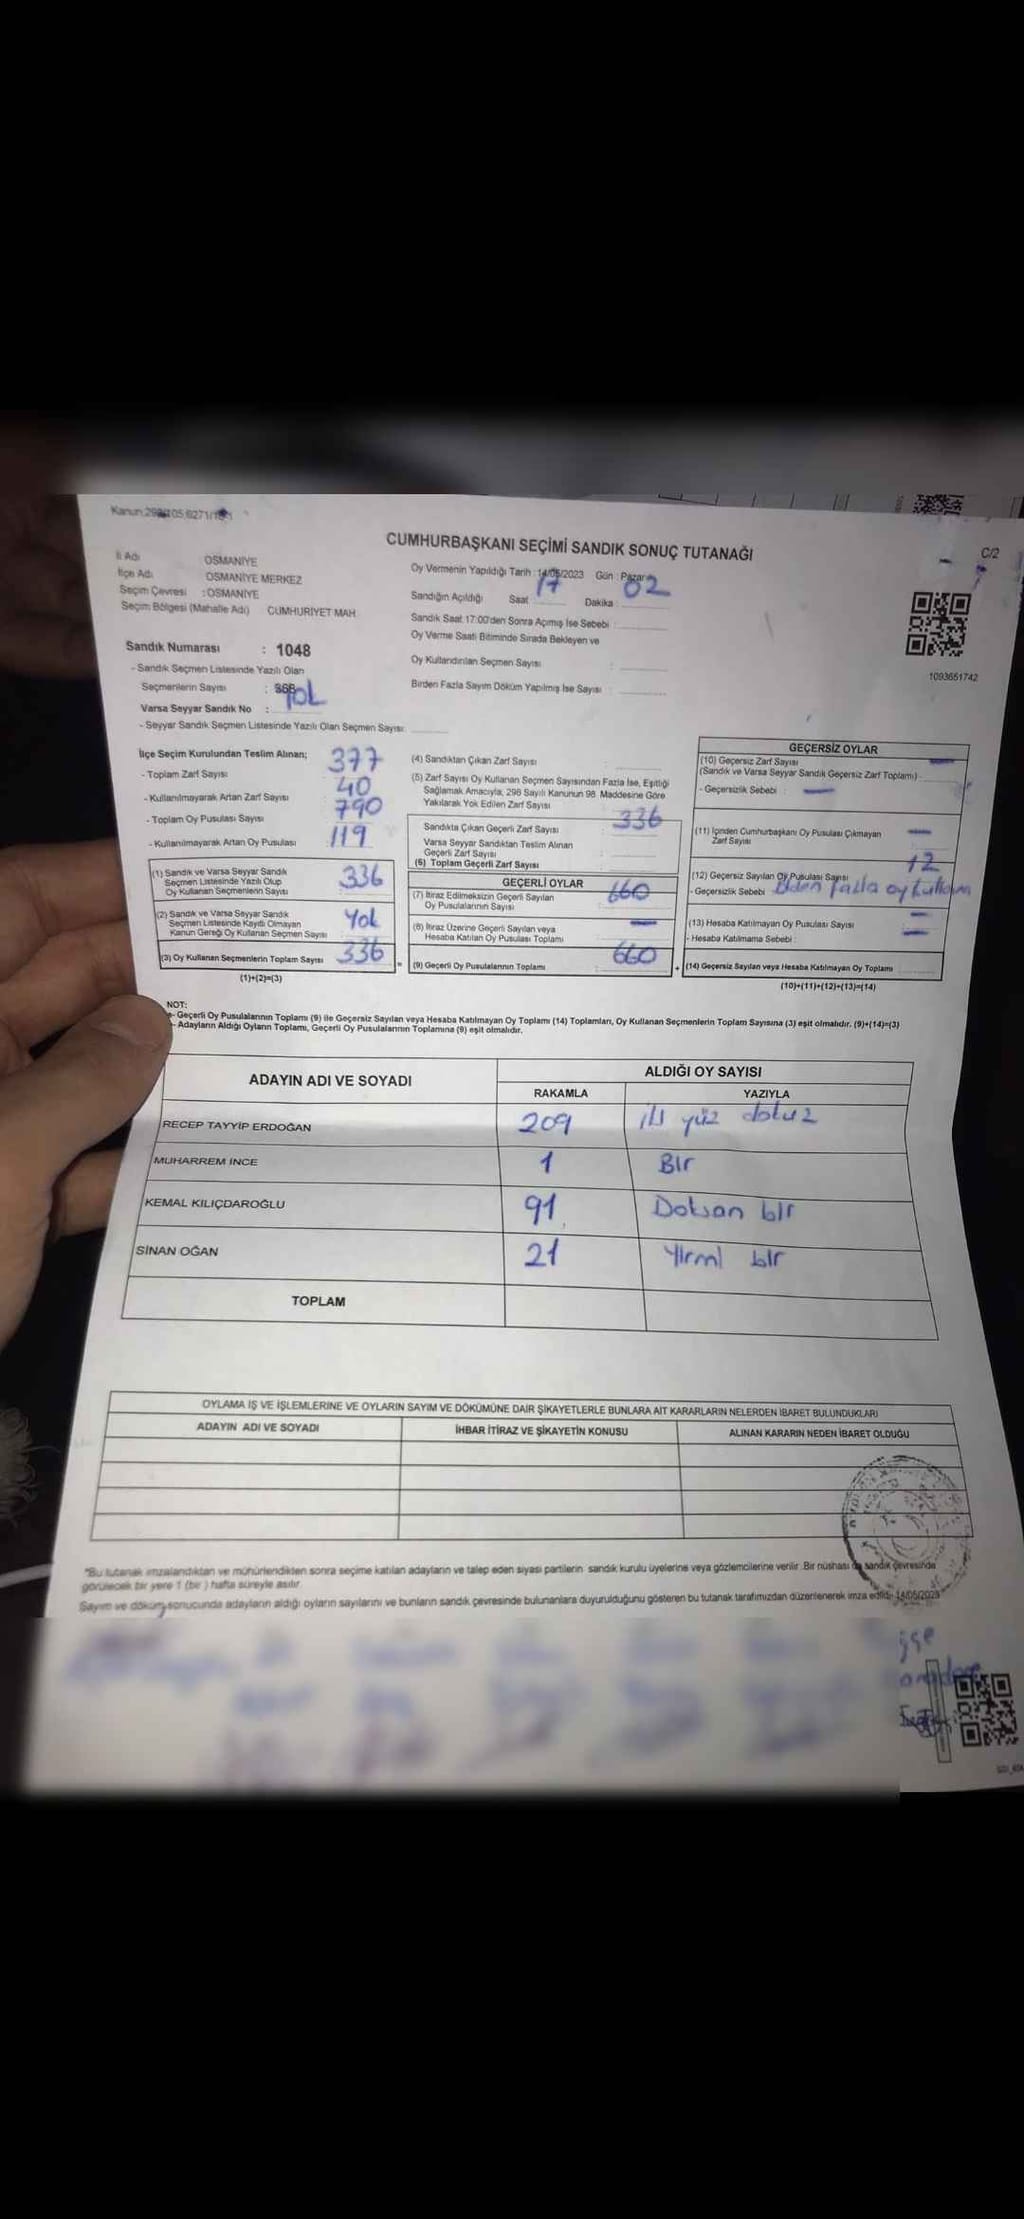 CUMHURBAŞKANI SEÇİMİ SANDIK SONUÇ TUTANAĞI
C/2
İl Adı OSMANİYE
İlçe Adı OSMANİYE MERKEZ
Seçim Çevresi : OSMANİYE
Seçim Bölgesi (Mahalle Adı) CUMHURİYET MAH.
Oy Vermenin Yapıldığı Tarih : 14/05/2023 Gün : Pazar
Sandığın Açıldığı Saat 17 Dakika : 02
Sandık Saat 17:00'den Sonra Açımış İse Sebebi :
Oy Verme Saati Bitiminde Sırada Bekleyen ve
Oy Kullandırılan Seçmen Sayısı :
Birden Fazla Sayım Döküm Yapılmış İse Sayısı :
1093651742
Sandık Numarası : 1048
- Sandık Seçmen Listesinde Yazılı Olan
Seçmenlerin Sayısı :
Varsa Seyyar Sandık No : Yok
- Seyyar Sandık Seçmen Listesinde Yazılı Olan Seçmen Sayısı:
İlçe Seçim Kurulundan Teslim Alınan;
- Toplam Zarf Sayısı 377
- Kullanılmayarak Artan Zarf Sayısı 40
- Toplam Oy Pusulası Sayısı 790
- Kullanılmayarak Artan Oy Pusulası 119
(1) Sandık ve Varsa Seyyar Sandık
Seçmen Listesinde Yazılı Olup
Oy Kullanan Seçmenlerin Sayısı : 336
(2) Sandık ve Varsa Seyyar Sandık
Seçmen Listesinde Kayıtlı Olmayan
Kanun Gereği Oy Kullanan Seçmen Sayısı : Yok
(3) Oy Kullanan Seçmenlerin Toplam Sayısı 336
(1)+(2)=(3)
(4) Sandıktan Çıkan Zarf Sayısı :
(5) Zarf Sayısı Oy Kullanan Seçmen Sayısından Fazla İse, Eşitliği
Sağlamak Amacıyla, 298 Sayılı Kanunun 98. Maddesine Göre
Yakılarak Yok Edilen Zarf Sayısı
Sandıkta Çıkan Geçerli Zarf Sayısı : 336
Varsa Seyyar Sandıktan Teslim Alınan
Geçerli Zarf Sayısı :
(6) Toplam Geçerli Zarf Sayısı
GEÇERLİ OYLAR
(7) İtiraz Edilmeksizin Geçerli Sayılan
Oy Pusulalarının Sayısı : 660
(8) İtiraz Üzerine Geçerli Sayılan veya
Hesaba Katılan Oy Pusulası Toplamı : —
(9) Geçerli Oy Pusulalarının Toplamı : 660
GEÇERSİZ OYLAR
(10) Geçersiz Zarf Sayısı —
(Sandık ve Varsa Seyyar Sandık Geçersiz Zarf Toplamı) :
- Geçersizlik Sebebi : —
(11) İçinden Cumhurbaşkanı Oy Pusulası Çıkmayan
Zarf Sayısı : —
(12) Geçersiz Sayılan Oy Pusulası Sayısı 12
- Geçersizlik Sebebi fazla oy
(13) Hesaba Katılmayan Oy Pusulası Sayısı : —
- Hesaba Katılmama Sebebi : —
(14) Geçersiz Sayılan veya Hesaba Katılmayan Oy Toplamı
(10)+(11)+(12)+(13)=(14)
NOT:
- Geçerli Oy Pusulalarının Toplamı (9) ile Geçersiz Sayılan veya Hesaba Katılmayan Oy Toplamı (14) Toplamları, Oy Kullanan Seçmenlerin Toplam Sayısına (3) eşit olmalıdır. (9)+(14)=(3)
- Adayların Aldığı Oyların Toplamı, Geçerli Oy Pusulalarının Toplamına (9) eşit olmalıdır.
ADAYIN ADI VE SOYADI ALDIĞI OY SAYISI
RAKAMLA YAZIYLA
RECEP TAYYİP ERDOĞAN 209 iki yüz dokuz
MUHARREM İNCE 1 Bir
KEMAL KILIÇDAROĞLU 91 Doksan bir
SİNAN OĞAN 21 Yirmi bir
TOPLAM
OYLAMA İŞ VE İŞLEMLERİNE VE OYLARIN SAYIM VE DÖKÜMÜNE DAİR ŞİKAYETLERLE BUNLARA AİT KARARLARIN NELERDEN İBARET BULUNDUKLARI
ADAYIN ADI VE SOYADI İHBAR İTİRAZ VE ŞİKAYETİN KONUSU ALINAN KARARIN NEDEN İBARET OLDUĞU
*Bu tutanak imzalandıktan ve mühürlendikten sonra seçime katılan adayların ve talep eden siyasi partilerin sandık kurulu üyelerine veya gözlemcilerine verilir. Bir nüshası da sandık çevresinde
görülecek bir yere 1 (bir ) hafta süreyle asılır.
Sayım ve döküm sonucunda adayların aldığı oyların sayılarını ve bunların sandık çevresinde bulunanlara duyurulduğunu gösteren bu tutanak tarafımızdan düzenlenerek imza edildi. 14/05/2023